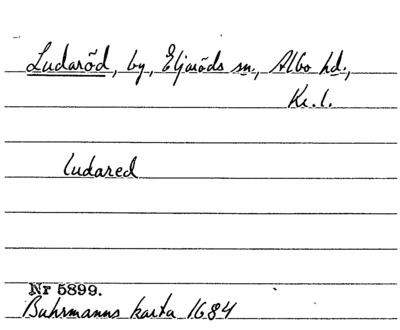 Ludaröd, by, Eljaröds sn., Albo hd.,
Kr. l.
ludared
Nr 5899.
Buhrmanns karta 1684